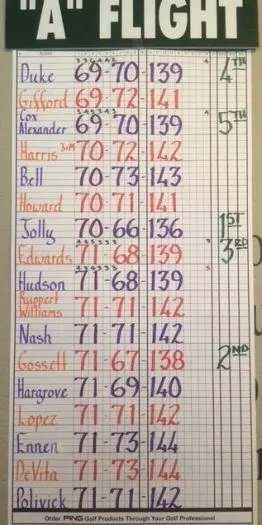 "A" FLIGHT
Duke 69-70-139 4TH
Gifford 69-72-141
Cox Alexander 69-70-139 5TH
Harris 70-72-142
Bell 70-73-143
Howard 70-71-141
Jolly 70-66-136 1ST
Edwards 71-68-139 3RD
Hudson 71-68-139
Ruppert Williams 71-71-142
Nash 71-71-142
Gossett 71-67-138 2ND
Hargrove 71-69-140
Lopez 71-71-142
Ennen 71-73-144
DeVita 71-73-144
Polivick 71-71-142
Order PING Golf Products Through Your Golf Professional